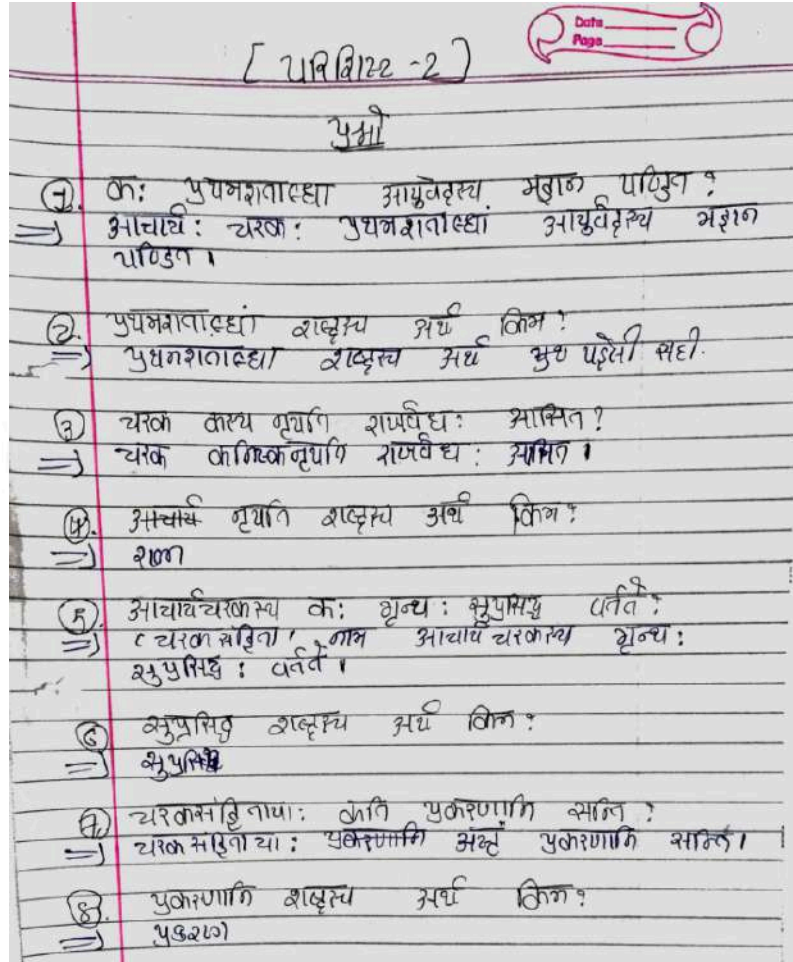 Date
Page
[ परिशिष्ट -2 ]
प्रश्नो
1. कः प्रथमशताब्धा आयुर्वेदस्य महान पण्डित ?
=> आचार्यः चरकः प्रथमशताब्धां आयुर्वेदस्य महान
पण्डित ।
2. प्रथमशताब्ध्यां शब्दस्य अर्थ किम ?
=> प्रथमशताब्ध्या शब्दस्य अर्थ पहेली सदी.
3 चरक कस्य नृपति राजवैधः आसित ?
=> चरक कनिस्कनृपति राजवैधः आसित ।
4. आचार्य नृपति शब्दस्य अर्थ किम ?
=> राजा
5. आचार्यचरकस्य कः ग्रन्थः सुप्रसिद्ध वर्तते ?
=> 'चरकसंहिता' नाम आचार्य चरकस्य ग्रन्थः
सुप्रसिद्धः वर्तते ।
6 सुप्रसिद्ध शब्दस्य अर्थ किम ?
=> सुप्रसिद्ध
7. चरकसंहितायाः कति प्रकरणानि सन्ति ?
=> चरकसंहितायाः प्रकरणानि अष्ट प्रकरणानि सन्ति ।
8. प्रकरणानि शब्दस्य अर्थ किम ?
=> प्रकरण